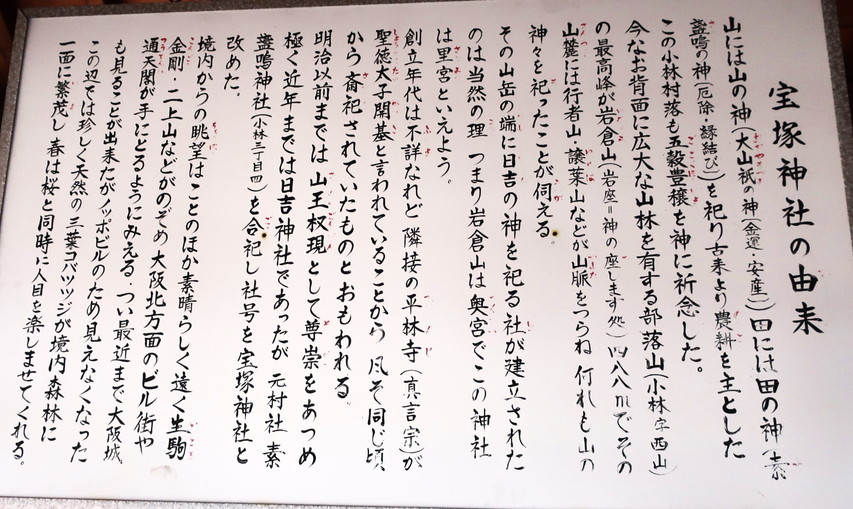 宝塚神社の由来
山には山の神(大山祇の神(金運・安産))田には田の神(素
盞鳴の神(厄除・縁結び)を祀り古来より農耕を主とした
この小林村落も五穀豊穣を神に祈念した。
今なお背面に広大な山林を有する部落山(小林字西山)
の最高峰が岩倉山(岩座=神の座します処)四八八mでその
山麓には行者山・譲葉山などが山脈をつらね 何れも山の
神々を祀ったことが伺える。
その山岳の端に日吉の神を祀る社が建立された
のは当然の理 つまり岩倉山は奥宮でこの神社
は里宮といえよう。
創立年代は不詳なれど 隣接の平林寺(真言宗)が
聖徳太子開基と言われていることから 凡そ同じ頃
から斎祀されていたものとおもわれる
明治以前までは山王权現として尊崇をあつめ
極く近年までは日吉神社であったが 元村社 素
盞鳴神社(小林三丁目四)を合祀し社号を宝塚神社と
改めた。
境内からの眺望はことのほか素晴らしく遠く生駒
金剛・二上山などがのぞめ 大阪北方面のビル街や
通天閣が手にとるようにみえる・つい最近まで大阪城
も見ることが出来たがノッポビルのため見えなくなった
この辺では珍しく天然の三葉コバツツジが境内森林に
一面に繁茂し 春は桜と同時に人目を楽しませてくれる。